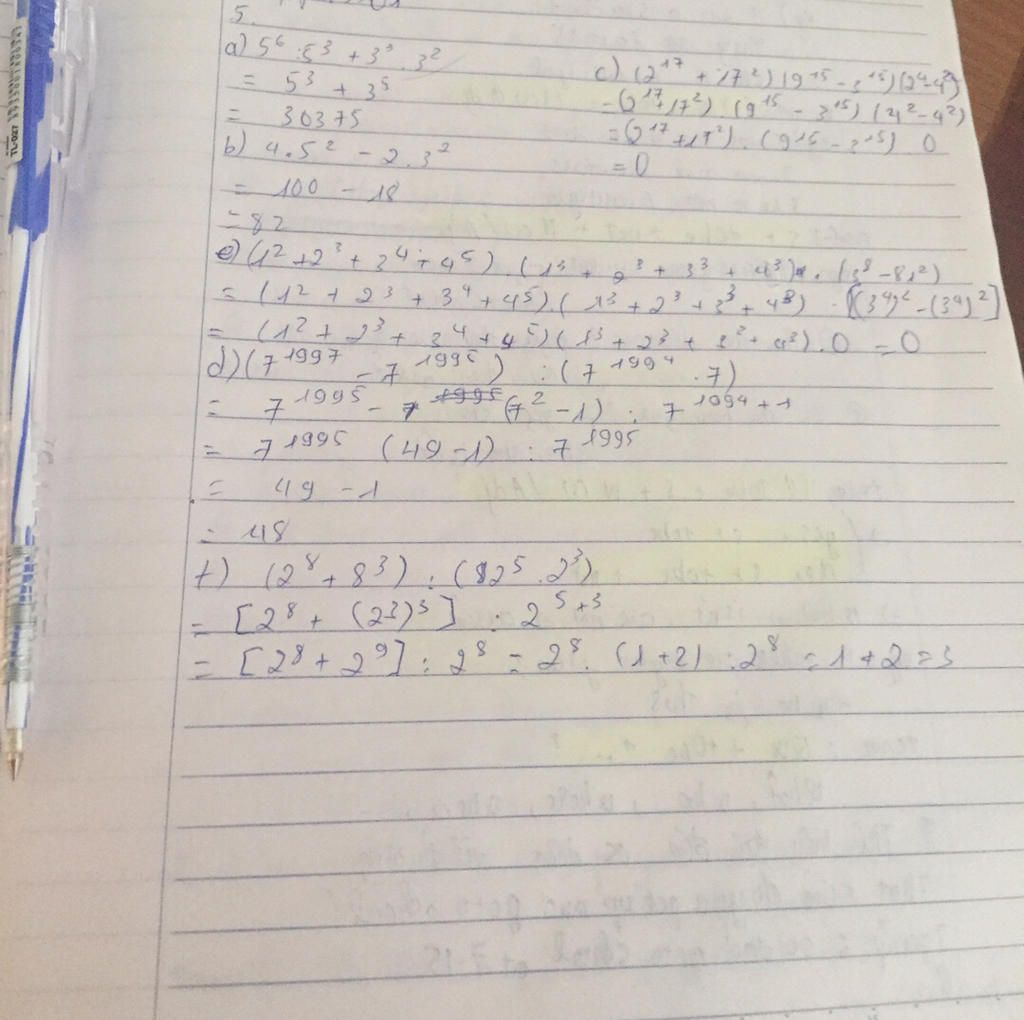 5.
a) 5⁶ : 5³ + 3³ . 3²
= 5³ + 3⁵
= 30375
b) 4.5² - 2.3²
= 100 - 18
= 82
c) (2¹⁷ + 17²) (9¹⁵ - 3¹⁵) (2⁴ - 4²)
= (2¹⁷ + 17²) . (9¹⁵ - 3¹⁵) (4² - 4²)
= (2¹⁷ + 17²) . (9¹⁵ - 3¹⁵) . 0
= 0
e) (1² + 2³ + 3⁴ + 4⁵) . (1³ + 2³ + 3³ + 4³) . (3⁸ - 81²)
= (1² + 2³ + 3⁴ + 4⁵) . (1³ + 2³ + 3³ + 4³) . [(3⁴)² - (3⁴)²]
= (1² + 2³ + 3⁴ + 4⁵) (1³ + 2³ + 3³ + 4³) . 0 = 0
d) (7¹⁹⁹⁷ - 7¹⁹⁹⁵) : (7¹⁹⁹⁴ . 7)
= 7¹⁹⁹⁵ - 7 1995 (7² - 1) : 7¹⁹⁹⁴⁺¹
= 7¹⁹⁹⁵ (49 - 1) : 7¹⁹⁹⁵
= 49 - 1
= 48
f) (2⁸ + 8³) : (2⁵ . 2³)
= [2⁸ + (2³)³] : 2⁵⁺³
= [2⁸ + 2⁹] : 2⁸ = 2⁸ . (1 + 2) : 2⁸ = 1 + 2 = 3
TL-027